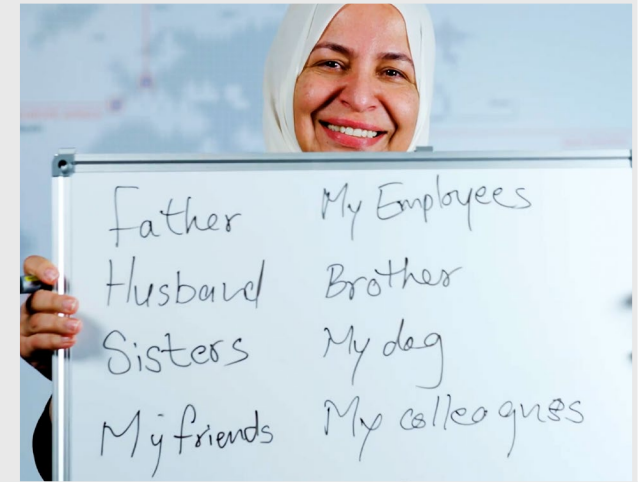 Father
Husband
Sisters
My friends
My Employees
Brother
My dog
My colleagues